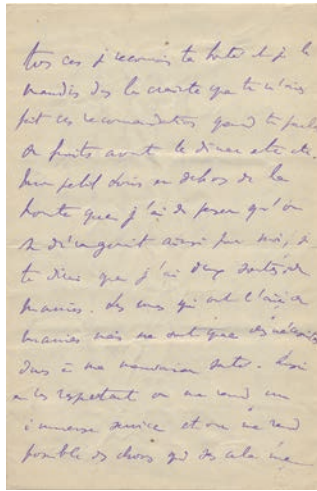 cas je reconnais ta bonté et je la
maudis dans la crainte que tu n'aies
fait ces recommandations quand tu parles
de fruits avant le dîner etc etc.
Mon petit Louis en dehors de la
honte que j'ai de penser qu'on
se dérangerait ainsi pour moi, je
te dirai que j'ai deux sortes de
manies. Les unes qui ont l'air de
manies mais ne sont que des nécessités
dues à ma mauvaise santé. Aussi
en les respectant on me rend un
immense service et on me rend
possible des choses qui sans cela